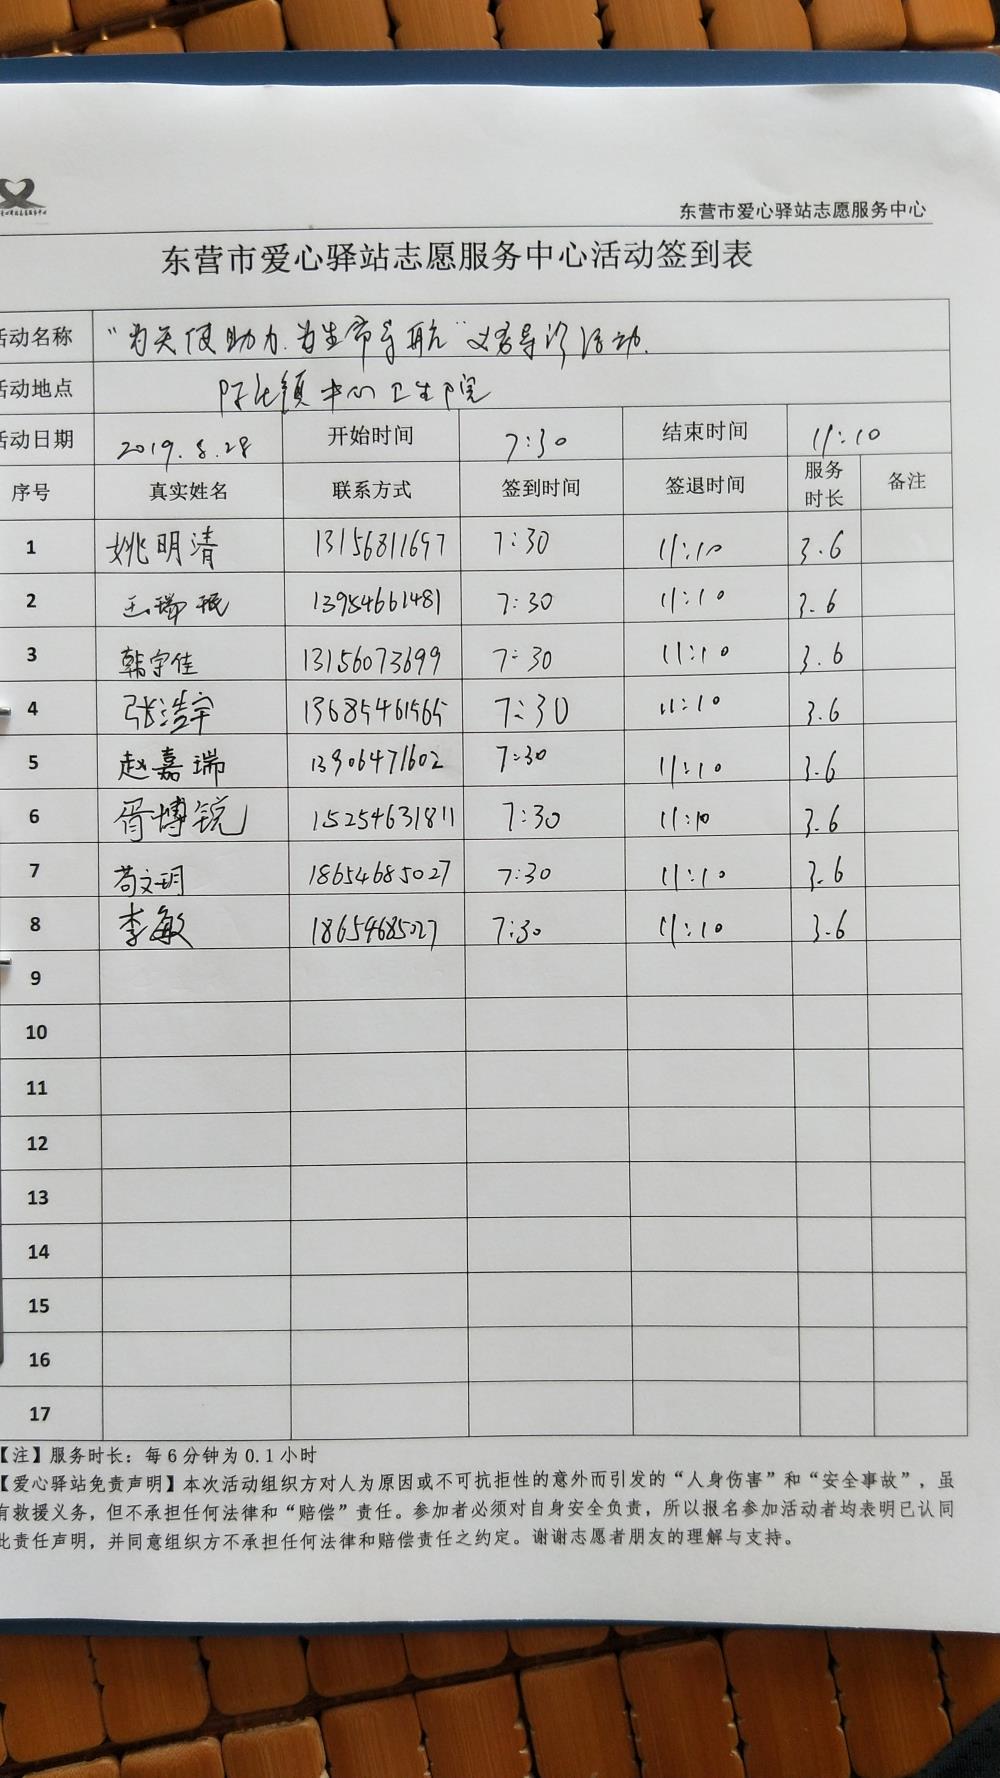 东营市爱心驿站志愿服务中心
东营市爱心驿站志愿服务中心活动签到表
活动名称 "为天使助力.为生命导航"义务导诊活动.
活动地点 中心卫生院
活动日期 2019.8.28 开始时间 7:30 结束时间 11:10
序号 真实姓名 联系方式 签到时间 签退时间 服务时长 备注
1 姚明清 13156811697 7:30 11:10 3.6
2 王瑞珉 13954661481 7:30 11:10 3.6
3 韩宇佳 13156073699 7:30 11:10 3.6
4 张浩宇 13685461565 7:30 11:10 3.6
5 赵嘉瑞 13906471602 7:30 11:10 3.6
6 胥博锐 15254631811 7:30 11:10 3.6
7 苟文玥 18654685027 7:30 11:10 3.6
8 李敏 18654685027 7:30 11:10 3.6
9
10
11
12
13
14
15
16
17
【注】服务时长：每6分钟为0.1小时
【爱心驿站免责声明】本次活动组织方对人为原因或不可抗拒性的意外而引发的“人身伤害”和“安全事故”，虽
有救援义务，但不承担任何法律和“赔偿”责任。参加者必须对自身安全负责，所以报名参加活动者均表明已认同
此责任声明，并同意组织方不承担任何法律和赔偿责任之约定。谢谢志愿者朋友的理解与支持。